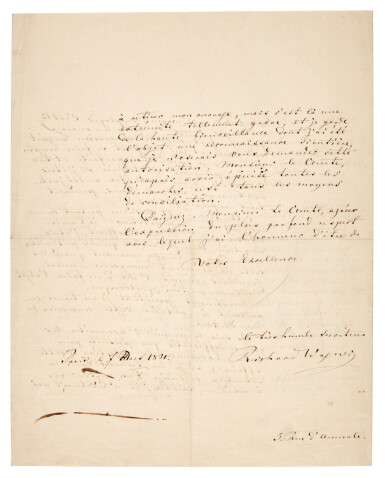 à retirer mon ouvrage, mais c'est là une
extrémité tellement grave, et je garde
de la haute bienveillance dont j'ai été
l'objet une reconnaissance si entière,
que je n'oserais vous demander cette
autorisation, Monsieur le Comte,
qu'après avoir épuisé toutes les
démarches et tous les moyens
de conciliation.
Daignez, Monsieur le Comte, agréer
l'expression du plus profond respect
avec lequel j'ai l'honneur d'être de
Votre Excellence
le très humble serviteur
Richard Wagner
Paris, le 7 Mars 1861.
3. Rue d'Aumale.